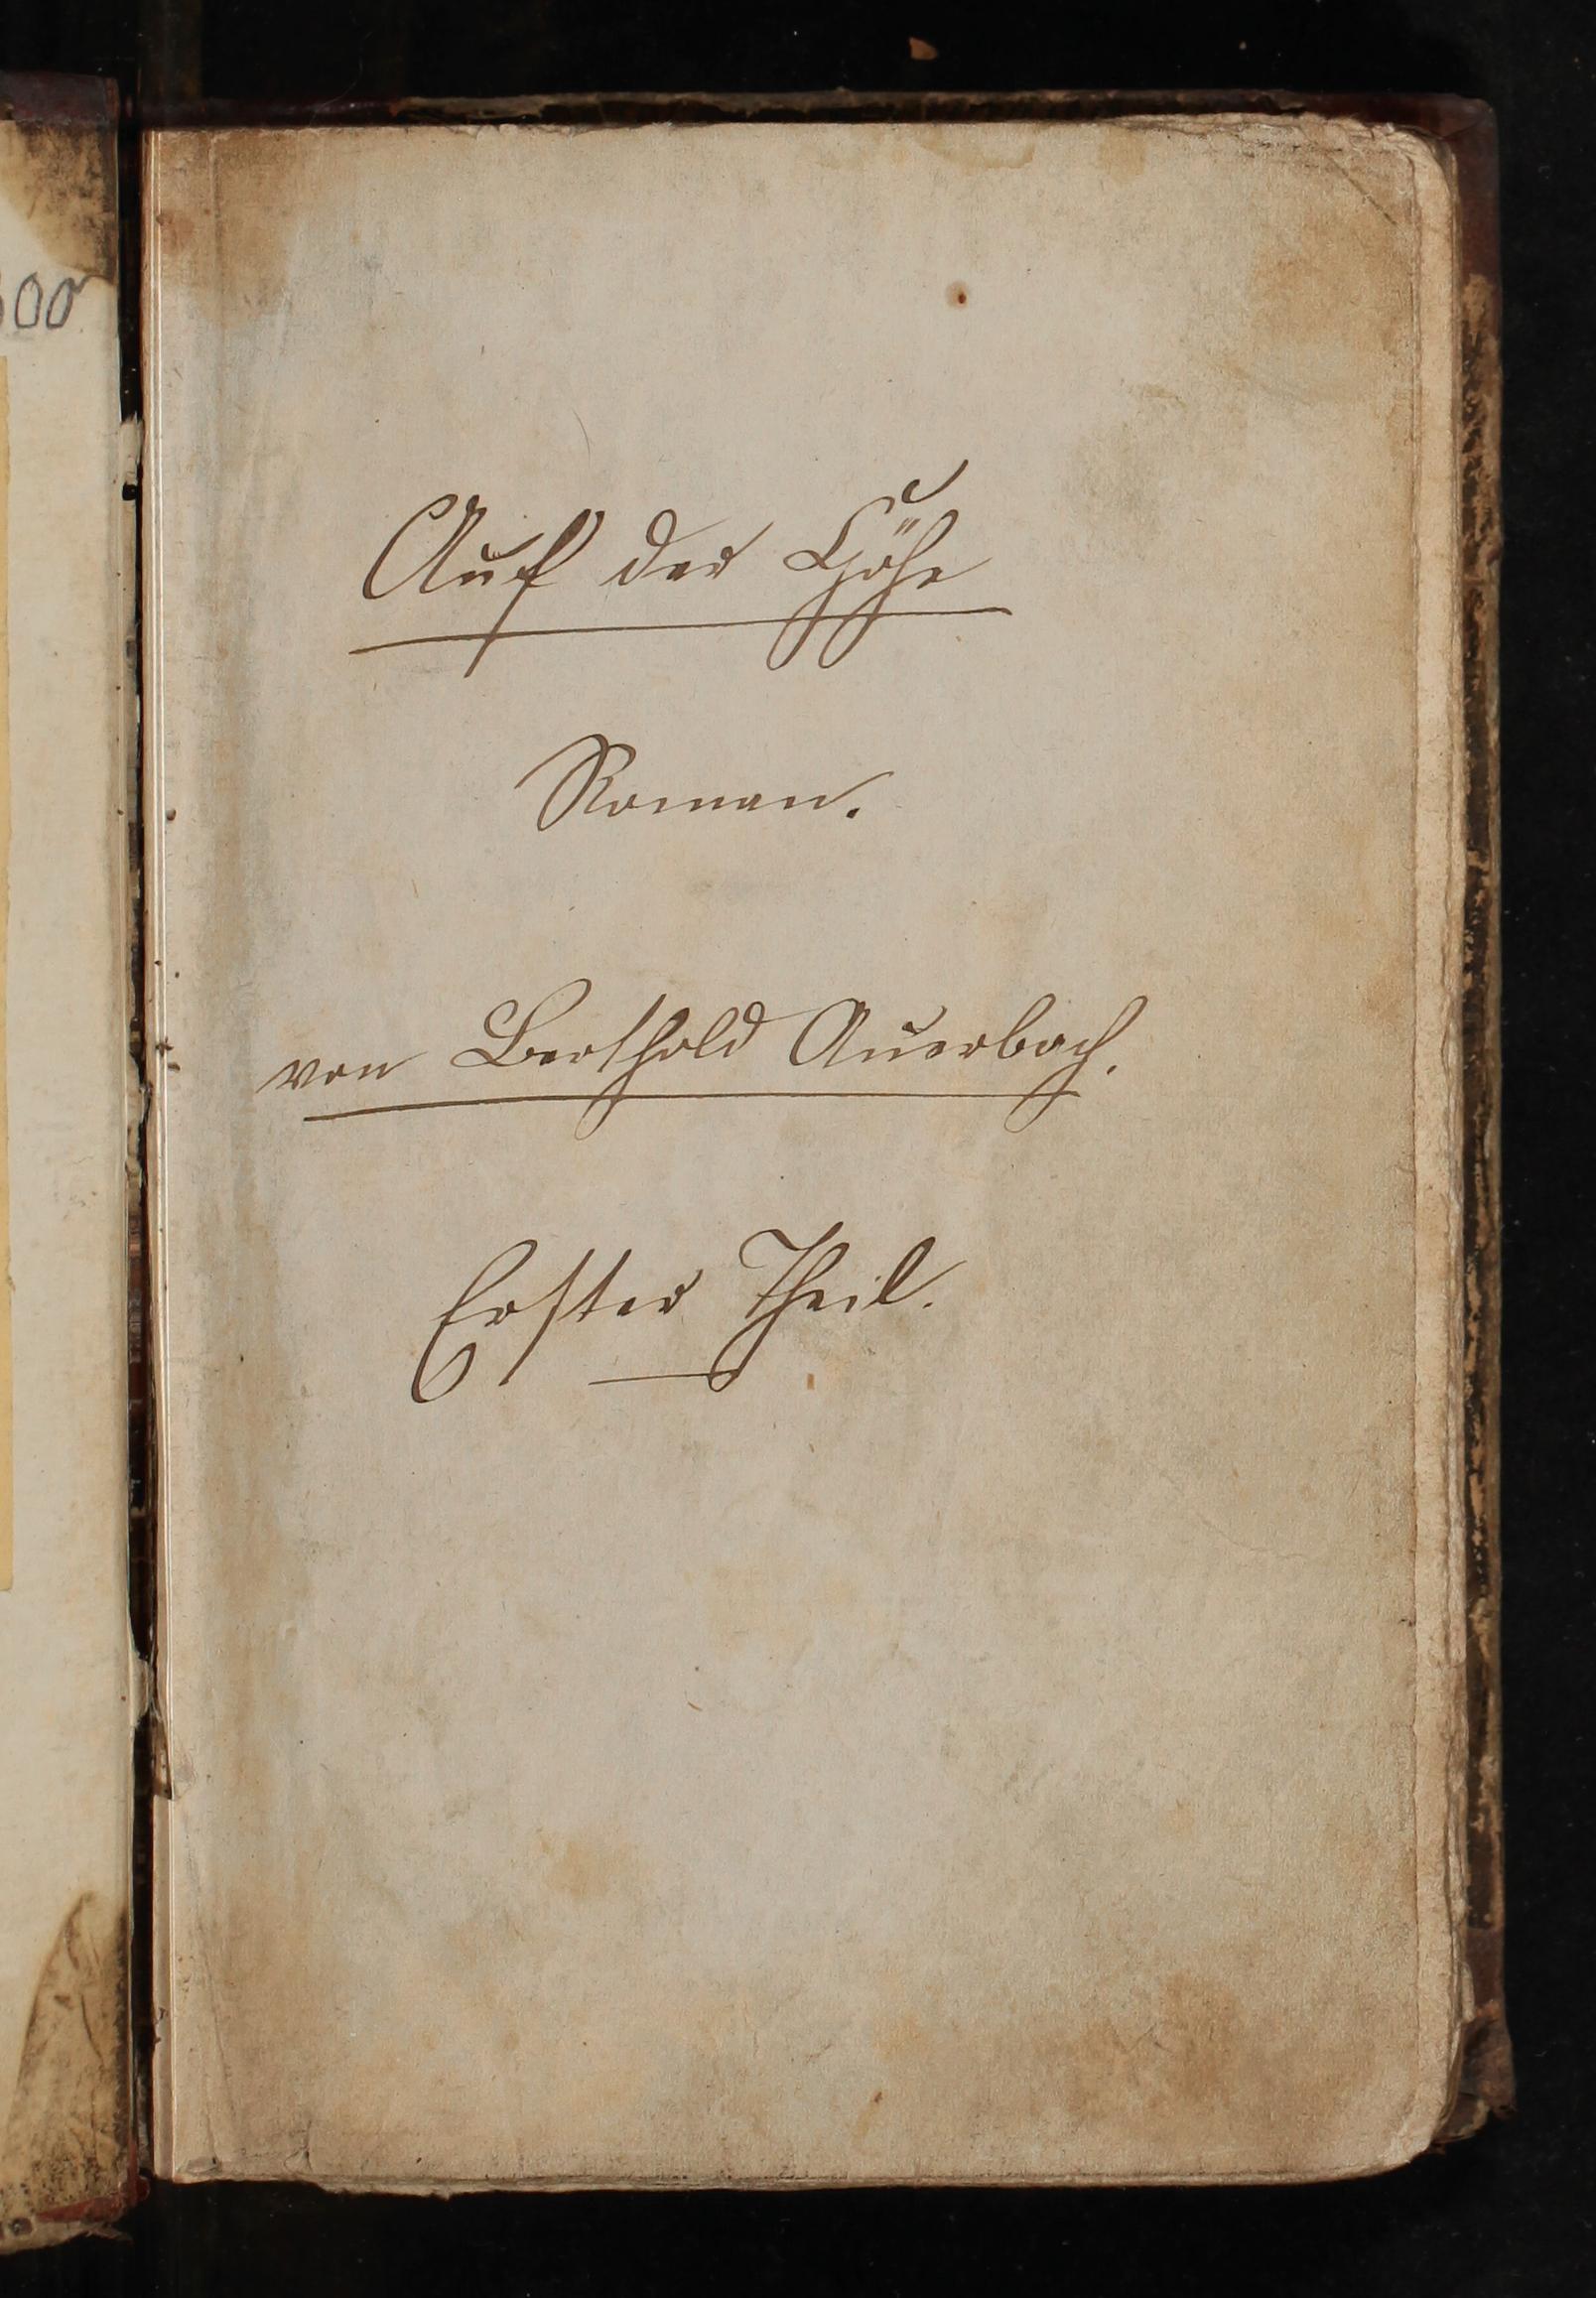 Auf der Höhe
Roman.
von Berthold Auerbach.
Erster Theil.